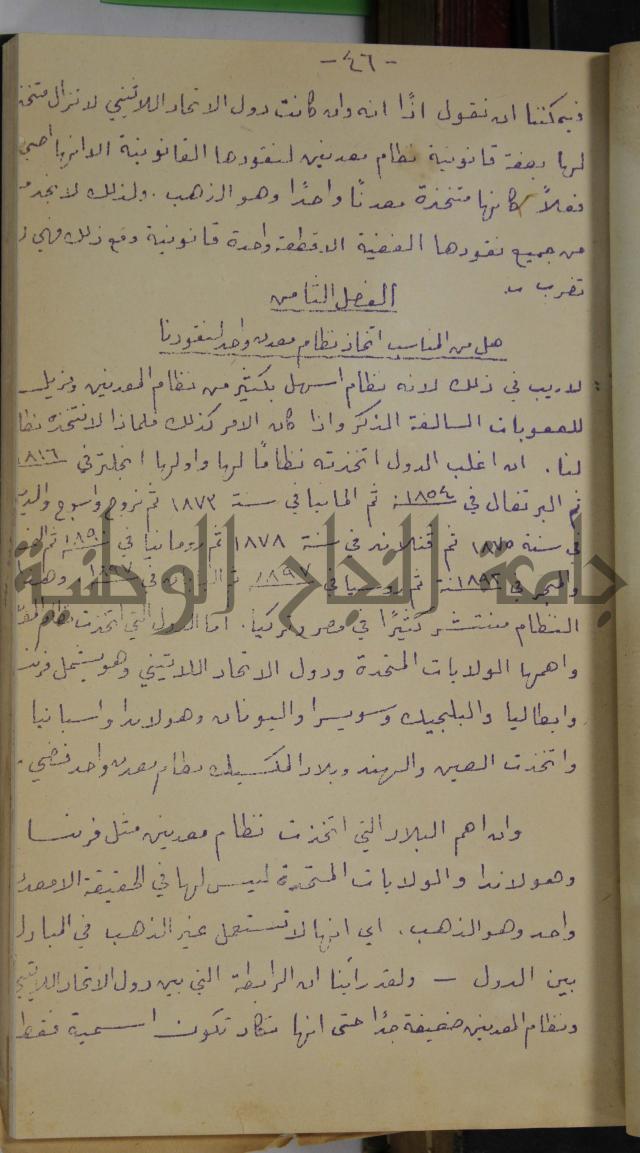 - ٤٦ -
فيمكننا ان نقول اذًا انه وان كانت دول الاتحاد اللاتيني لا تزال متخذ
لها بصفة قانونية نظام معدنين لنقودها القانونية الا انها
فعلاً كانها متخذة معدنًا واحدًا وهو الذهب . ولذلك لا نجد
من جميع نقودها الفضية الا قطعة واحدة قانونية ومع ذلك فهي
تضرب
الفصل الثامن
هل من المناسب اتخاذ نظام معدن واحد لنقودنا
لا ريب في ذلك لانه نظام اسهل بكثير من نظام المعدنين ومزيل
للصعوبات السالفة الذكر واذا كان الامر كذلك فلماذا لا نتخذه نظا
لنا . ان اغلب الدول اتخذته نظامًا لها واولها انجلترا في ١٨١٦
ثم البرتغال في سنة ١٨٥٤ ثم المانيا في سنة ١٨٧٣ ثم نروج واسوج والد
في سنة ١٨٧٥ ثم فنلاند في سنة ١٨٧٨ ثم رومانيا في ١٨٩٠ ثم
والمجر في سنة ١٨٩٢ ثم روسيا في ١٨٩٧ ثم في ١٨٩٧ وهذا
جامعة النجاح الوطنية
النظام منتشر كثيرًا في مصر وتركيا . اما الدول التي اتخذت نظام
واهمها الولايات المتحدة ودول الاتحاد اللاتيني وهو يشمل فرنسا
وايطاليا والبلجيك وسويسرا واليونان وهولاندا واسبانيا
واتخذت الصين والهند وبلاد المكسيك نظام معدن واحد فضي .
وان اهم البلاد التي اتخذت نظام معدنين مثل فرنسا
وهولاندا والولايات المتحدة ليس لها في الحقيقة الا معدن
واحد وهو الذهب . اي انها لا تستعمل غير الذهب في المبادل
بين الدول – ولقد رأينا ان الرابطة التي بين دول الاتحاد اللاتيني
ونظام المعدنين ضعيفة جدًا حتى انها تكاد تكون اسمية فقط